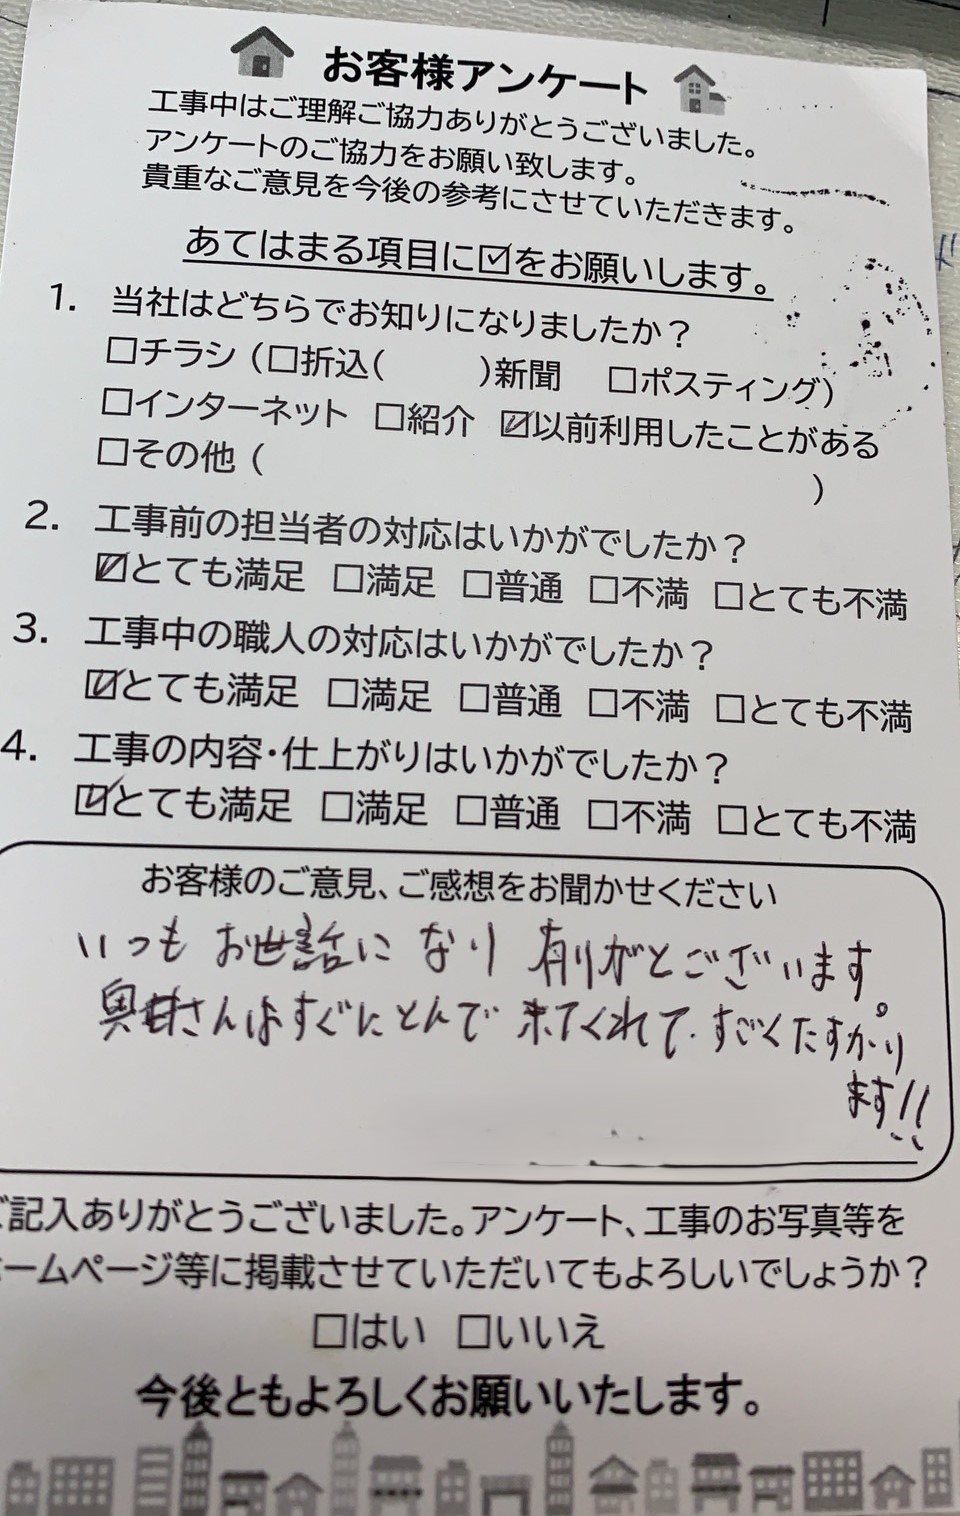 お客様アンケート
工事中はご理解ご協力ありがとうございました。
アンケートのご協力をお願い致します。
貴重なご意見を今後の参考にさせていただきます。
あてはまる項目に☑をお願いします。
1. 当社はどちらでお知りになりましたか？
□チラシ（□折込(　　　)新聞　□ポスティング）
□インターネット　□紹介　☑以前利用したことがある
□その他（　　　　　　　　　　　　　　　）
2. 工事前の担当者の対応はいかがでしたか？
☑とても満足　□満足　□普通　□不満　□とても不満
3. 工事中の職人の対応はいかがでしたか？
☑とても満足　□満足　□普通　□不満　□とても不満
4. 工事の内容・仕上がりはいかがでしたか？
☑とても満足　□満足　□普通　□不満　□とても不満
お客様のご意見、ご感想をお聞かせください
いつも お世話に なり 有りがとございます。
奥井さんはすぐにとんで 来てくれて、すごくたすかり
ます!!
ご記入ありがとうございました。アンケート、工事のお写真等を
ホームページ等に掲載させていただいてもよろしいでしょうか？
□はい　□いいえ
今後ともよろしくお願いいたします。